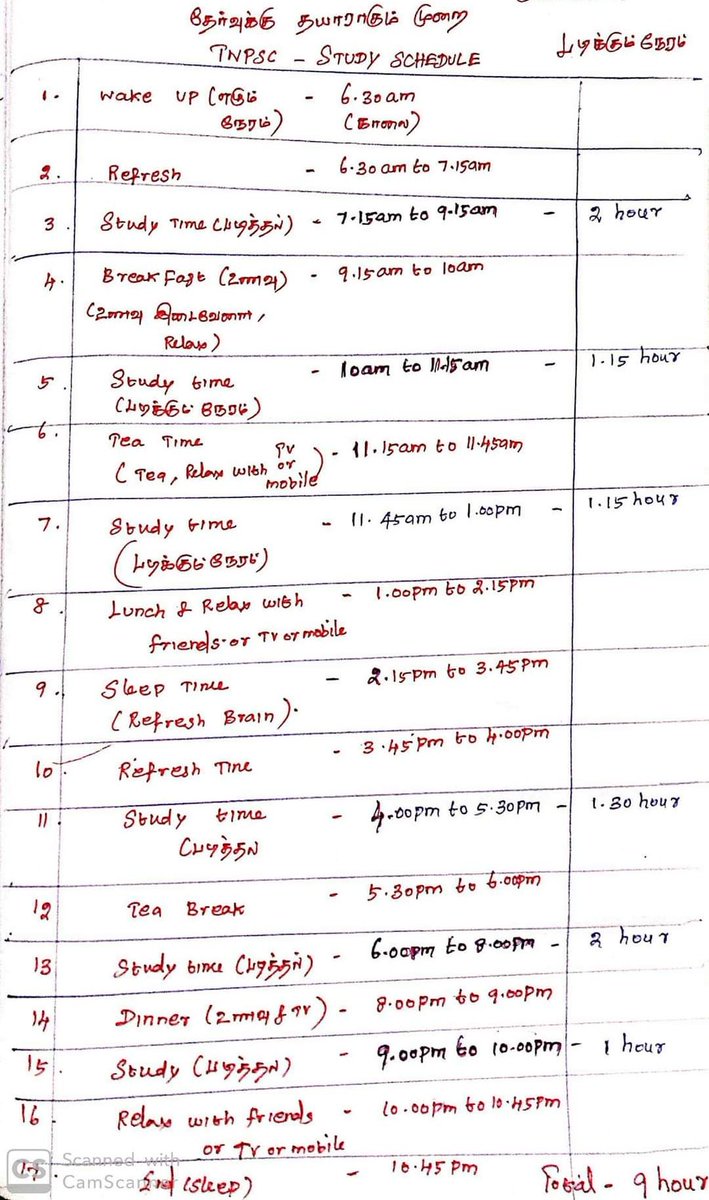 தேர்வுக்கு தயாராகும் முறை
TNPSC - STUDY SCHEDULE படிக்கும் நேரம்
1. Wake up (எழும் - 6.30am
நேரம்) (காலை)
2. Refresh - 6.30am to 7.15am
3. Study Time (படித்தல்) - 7.15am to 9.15am - 2 hour
4. Break Fast (உணவு) - 9.15am to 10am
(உணவு இடைவேளை,
Relax)
5. Study time - 10am to 11.15am - 1.15 hour
(படிக்கும் நேரம்)
6. Tea Time - 11.15am to 11.45am
(Tea, Relax with TV or mobile)
7. Study time - 11.45am to 1.00pm - 1.15 hour
(படிக்கும் நேரம்)
8. Lunch & Relax with - 1.00pm to 2.15pm
friends or TV or mobile
9. Sleep Time - 2.15pm to 3.45pm
(Refresh Brain).
10. Refresh Time - 3.45pm to 4.00pm
11. Study time - 4.00pm to 5.30pm - 1.30 hour
(படித்தல்
12 Tea Break - 5.30pm to 6.00pm
13 Study time (படித்தல்) - 6.00pm to 8.00pm - 2 hour
14 Dinner (உணவு & TV) - 8.00pm to 9.00pm
15. Study (படித்தல்) - 9.00pm to 10.00pm - 1 hour
16 Relax with friends - 10.00pm to 10.45pm
or TV or mobile
17. End (sleep) - 10.45pm Total - 9 hour
CS Scanned with
CamScanner